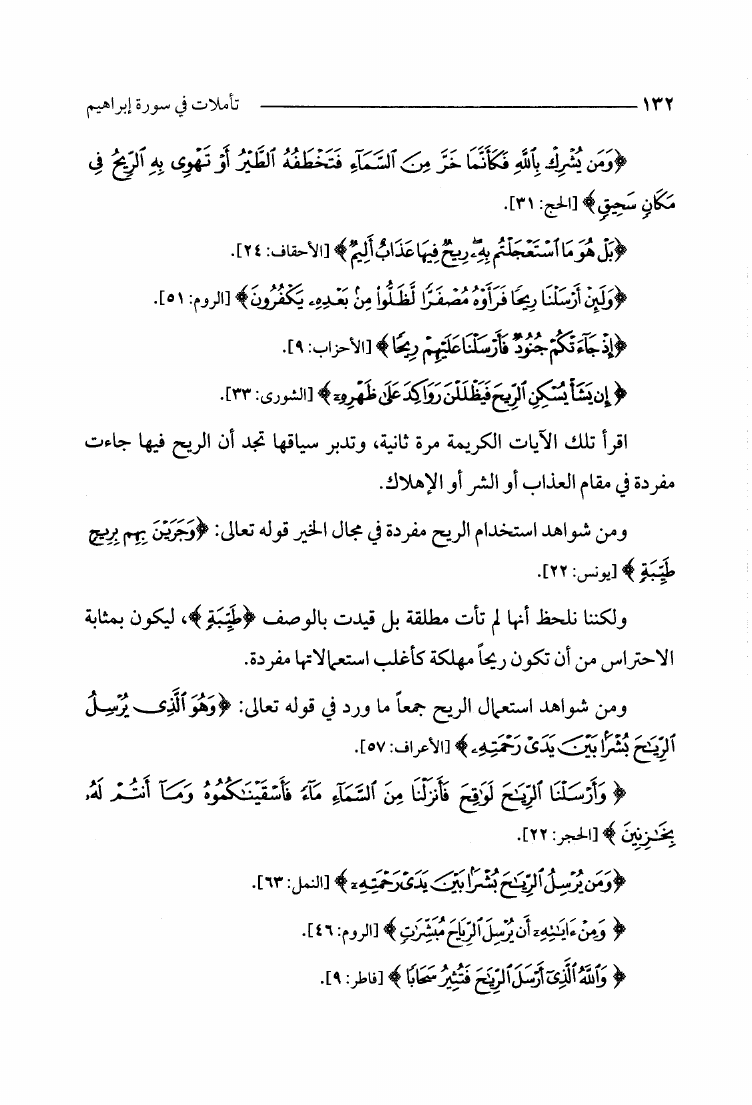 ١٣٢ تأملات في سورة إبراهيم
﴿وَمَن يُشْرِكْ بِٱللَّهِ فَكَأَنَّمَا خَرَّ مِنَ ٱلسَّمَآءِ فَتَخْطَفُهُ ٱلطَّيْرُ أَوْ تَهْوِى بِهِ ٱلرِّيحُ فِى
مَكَانٍ سَحِيقٍ﴾ [الحج: ٣١].
﴿بَلْ هُوَ مَا ٱسْتَعْجَلْتُم بِهِۦ ۖ رِيحٌ فِيهَا عَذَابٌ أَلِيمٌ﴾ [الأحقاف: ٢٤].
﴿وَلَئِنْ أَرْسَلْنَا رِيحًا فَرَأَوْهُ مُصْفَرًّا لَّظَلُّوا۟ مِنۢ بَعْدِهِۦ يَكْفُرُونَ﴾ [الروم: ٥١].
﴿إِذْ جَآءَتْكُمْ جُنُودٌ فَأَرْسَلْنَا عَلَيْهِمْ رِيحًا﴾ [الأحزاب: ٩].
﴿إِن يَشَأْ يُسْكِنِ ٱلرِّيحَ فَيَظْلَلْنَ رَوَاكِدَ عَلَىٰ ظَهْرِهِۦٓ﴾ [الشورى: ٣٣].
اقرأ تلك الآيات الكريمة مرة ثانية، وتدبر سياقها تجد أن الريح فيها جاءت
مفردة في مقام العذاب أو الشر أو الإهلاك.
ومن شواهد استخدام الريح مفردة في مجال الخير قوله تعالى: ﴿وَجَرَيْنَ بِهِم بِرِيحٍ
طَيِّبَةٍ﴾ [يونس: ٢٢].
ولكننا نلحظ أنها لم تأت مطلقة بل قيدت بالوصف ﴿طَيِّبَةٍ﴾، ليكون بمثابة
الاحتراس من أن تكون ريحاً مهلكة كأغلب استعمالاتها مفردة.
ومن شواهد استعمال الريح جمعاً ما ورد في قوله تعالى: ﴿وَهُوَ ٱلَّذِى يُرْسِلُ
ٱلرِّيَٰحَ بُشْرًۢا بَيْنَ يَدَىْ رَحْمَتِهِۦ﴾ [الأعراف: ٥٧].
﴿وَأَرْسَلْنَا ٱلرِّيَٰحَ لَوَٰقِحَ فَأَنزَلْنَا مِنَ ٱلسَّمَآءِ مَآءً فَأَسْقَيْنَٰكُمُوهُ وَمَآ أَنتُمْ لَهُۥ
بِخَٰزِنِينَ﴾ [الحجر: ٢٢].
﴿وَمَن يُرْسِلُ ٱلرِّيَٰحَ بُشْرًۢا بَيْنَ يَدَىْ رَحْمَتِهِۦٓ﴾ [النمل: ٦٣].
﴿وَمِنْ ءَايَٰتِهِۦٓ أَن يُرْسِلَ ٱلرِّيَاحَ مُبَشِّرَٰتٍ﴾ [الروم: ٤٦].
﴿وَٱللَّهُ ٱلَّذِىٓ أَرْسَلَ ٱلرِّيَٰحَ فَتُثِيرُ سَحَابًا﴾ [فاطر: ٩].